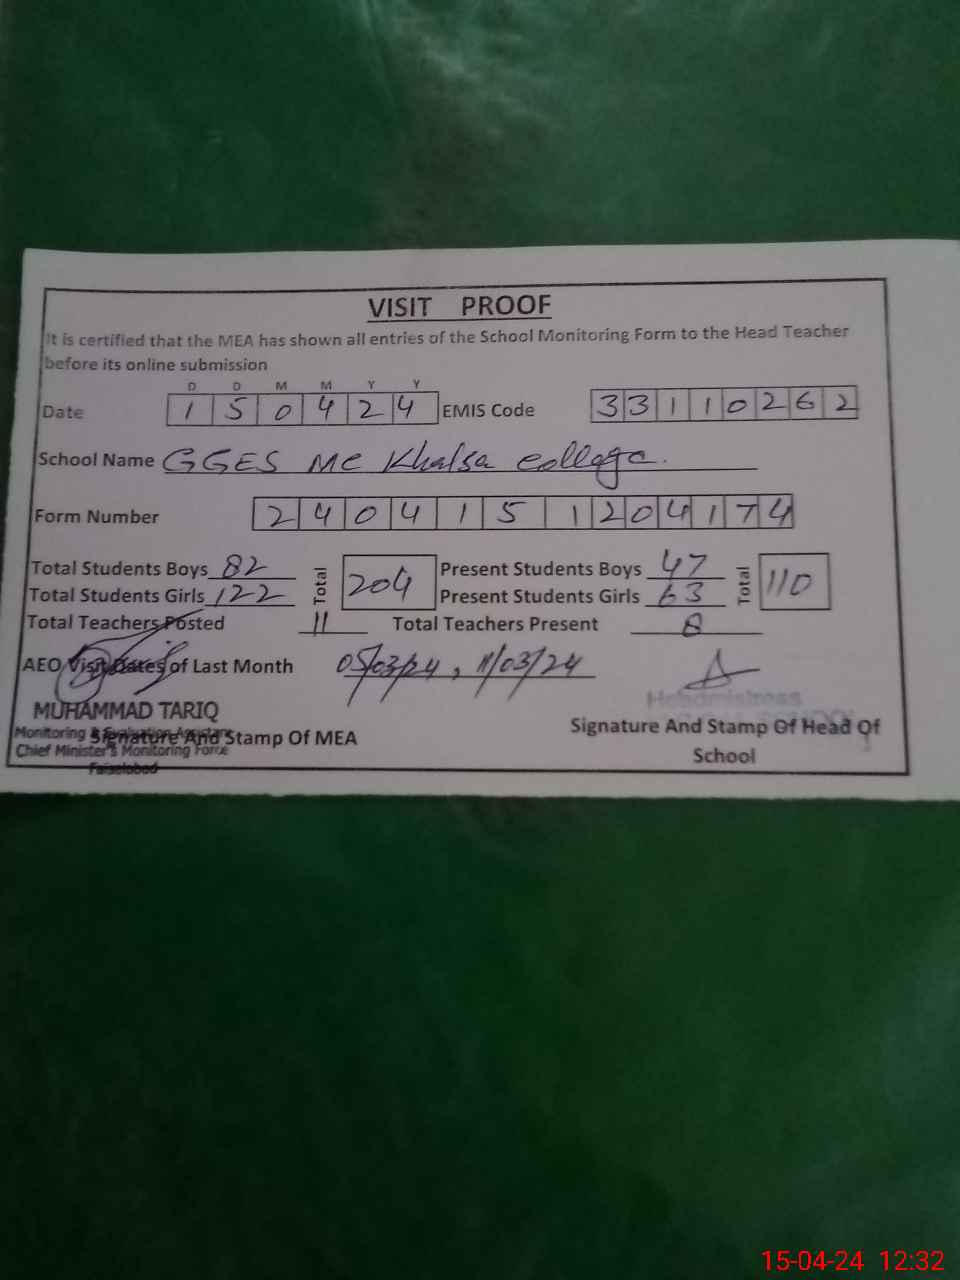 VISIT PROOF
It is certified that the MEA has shown all entries of the School Monitoring Form to the Head Teacher
before its online submission
D D M M Y Y
Date 1 5 0 4 2 4 EMIS Code 3 3 1 1 0 2 6 2
School Name GGES MC Khalsa college.
Form Number 2 4 0 4 1 5 1 2 0 4 1 7 4
Total Students Boys 82 Total 204 Present Students Boys 47 Total 110
Total Students Girls 122 Present Students Girls 63
Total Teachers Posted 11 Total Teachers Present 8
AEO Visit Dates of Last Month 05/03/24, 11/03/24
Headmistress
MUHAMMAD TARIQ
Monitoring & Evaluation Assistant
Signature And Stamp Of MEA
Chief Minister's Monitoring Force
Faisalabad
Signature And Stamp Of Head Of
School
15-04-24 12:32